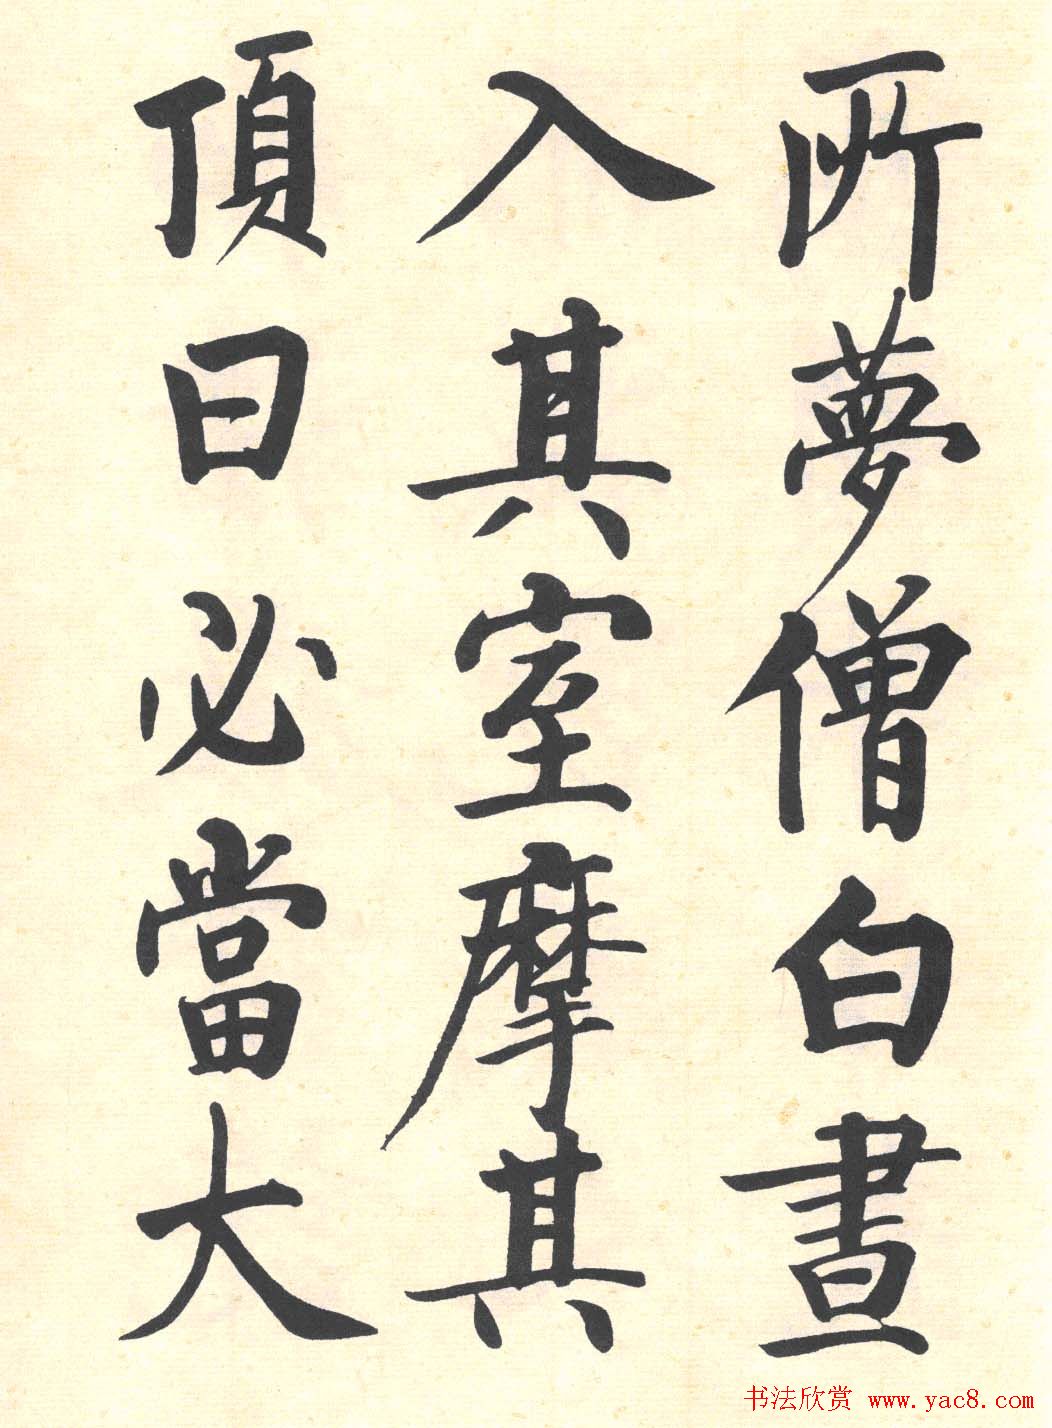 所夢僧白晝
入其室摩其
頂曰必當大
书法欣赏 www.yac8.com